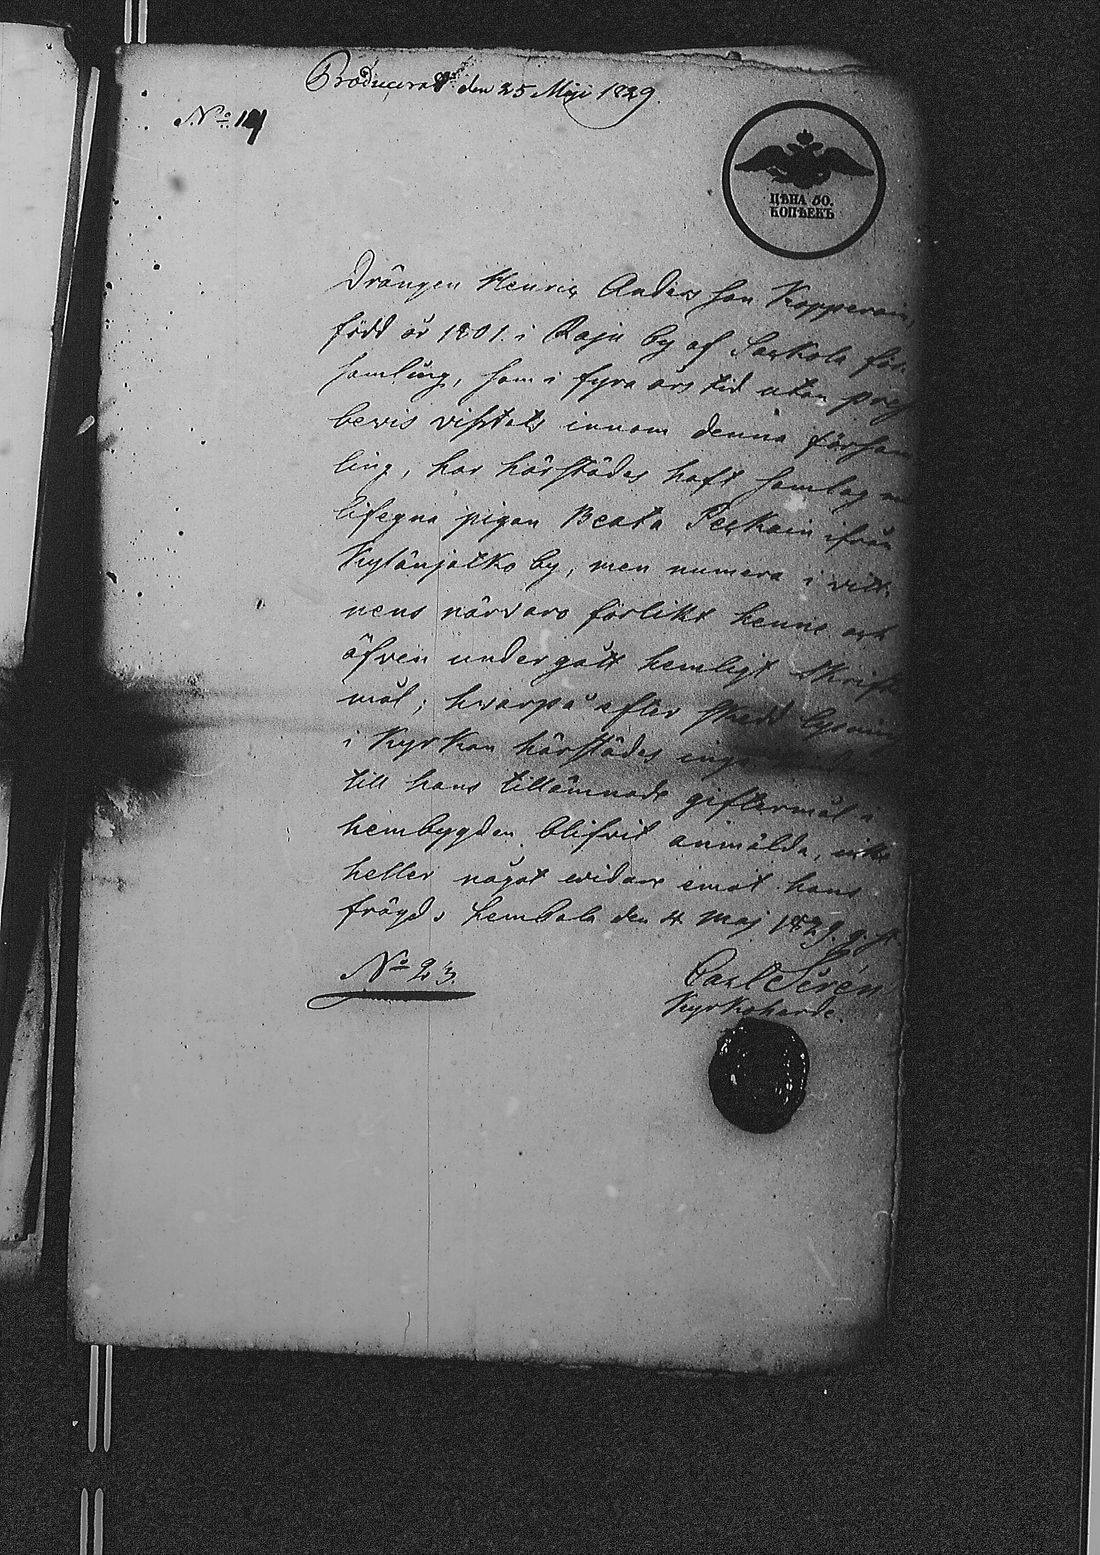 Producerat den 25 Maji 1829.
No 14
ЦѢНА 50.
КОПѢЕКЪ
Drängen Henric Anders son Kopperoin,
född år 1801. i Raju by af Sackola för-
samling, som i fyra års tid utan
bevis vistats innom denna försam
ling, har härstädes haft samlag
lifegna pigan Beata Peckoin ifrån
by, men numera i vitt-
nens närvaro förlikt henne och
äfven undergått hemligt Skrifte
mål; hvarpå efter skedd lysning
i Kyrkan härstädes inga
till hans tillämnade giftermål i
hembygden blifvit anmälda, icke
heller något vidare emot hans
frägd. Lembala den 4 Maj 1829. g. st.
No 23.
Carl Sirén
Kyrkoherde.